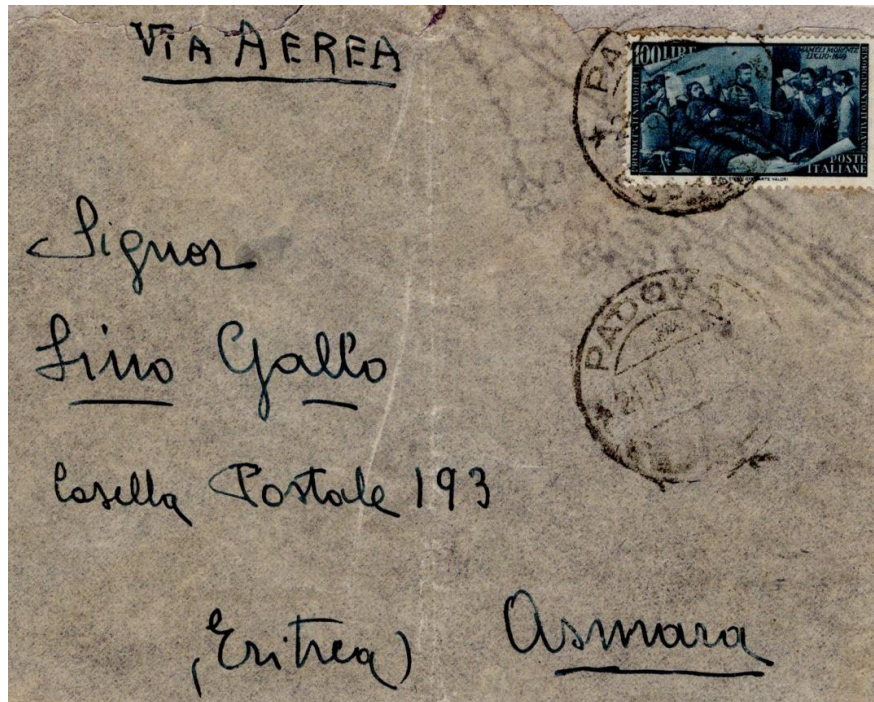 VIA AEREA
100 LIRE
POSTE
ITALIANE
Signor
Lino Gallo
PADOVA
Casella Postale 193
(Eritrea) Asmara